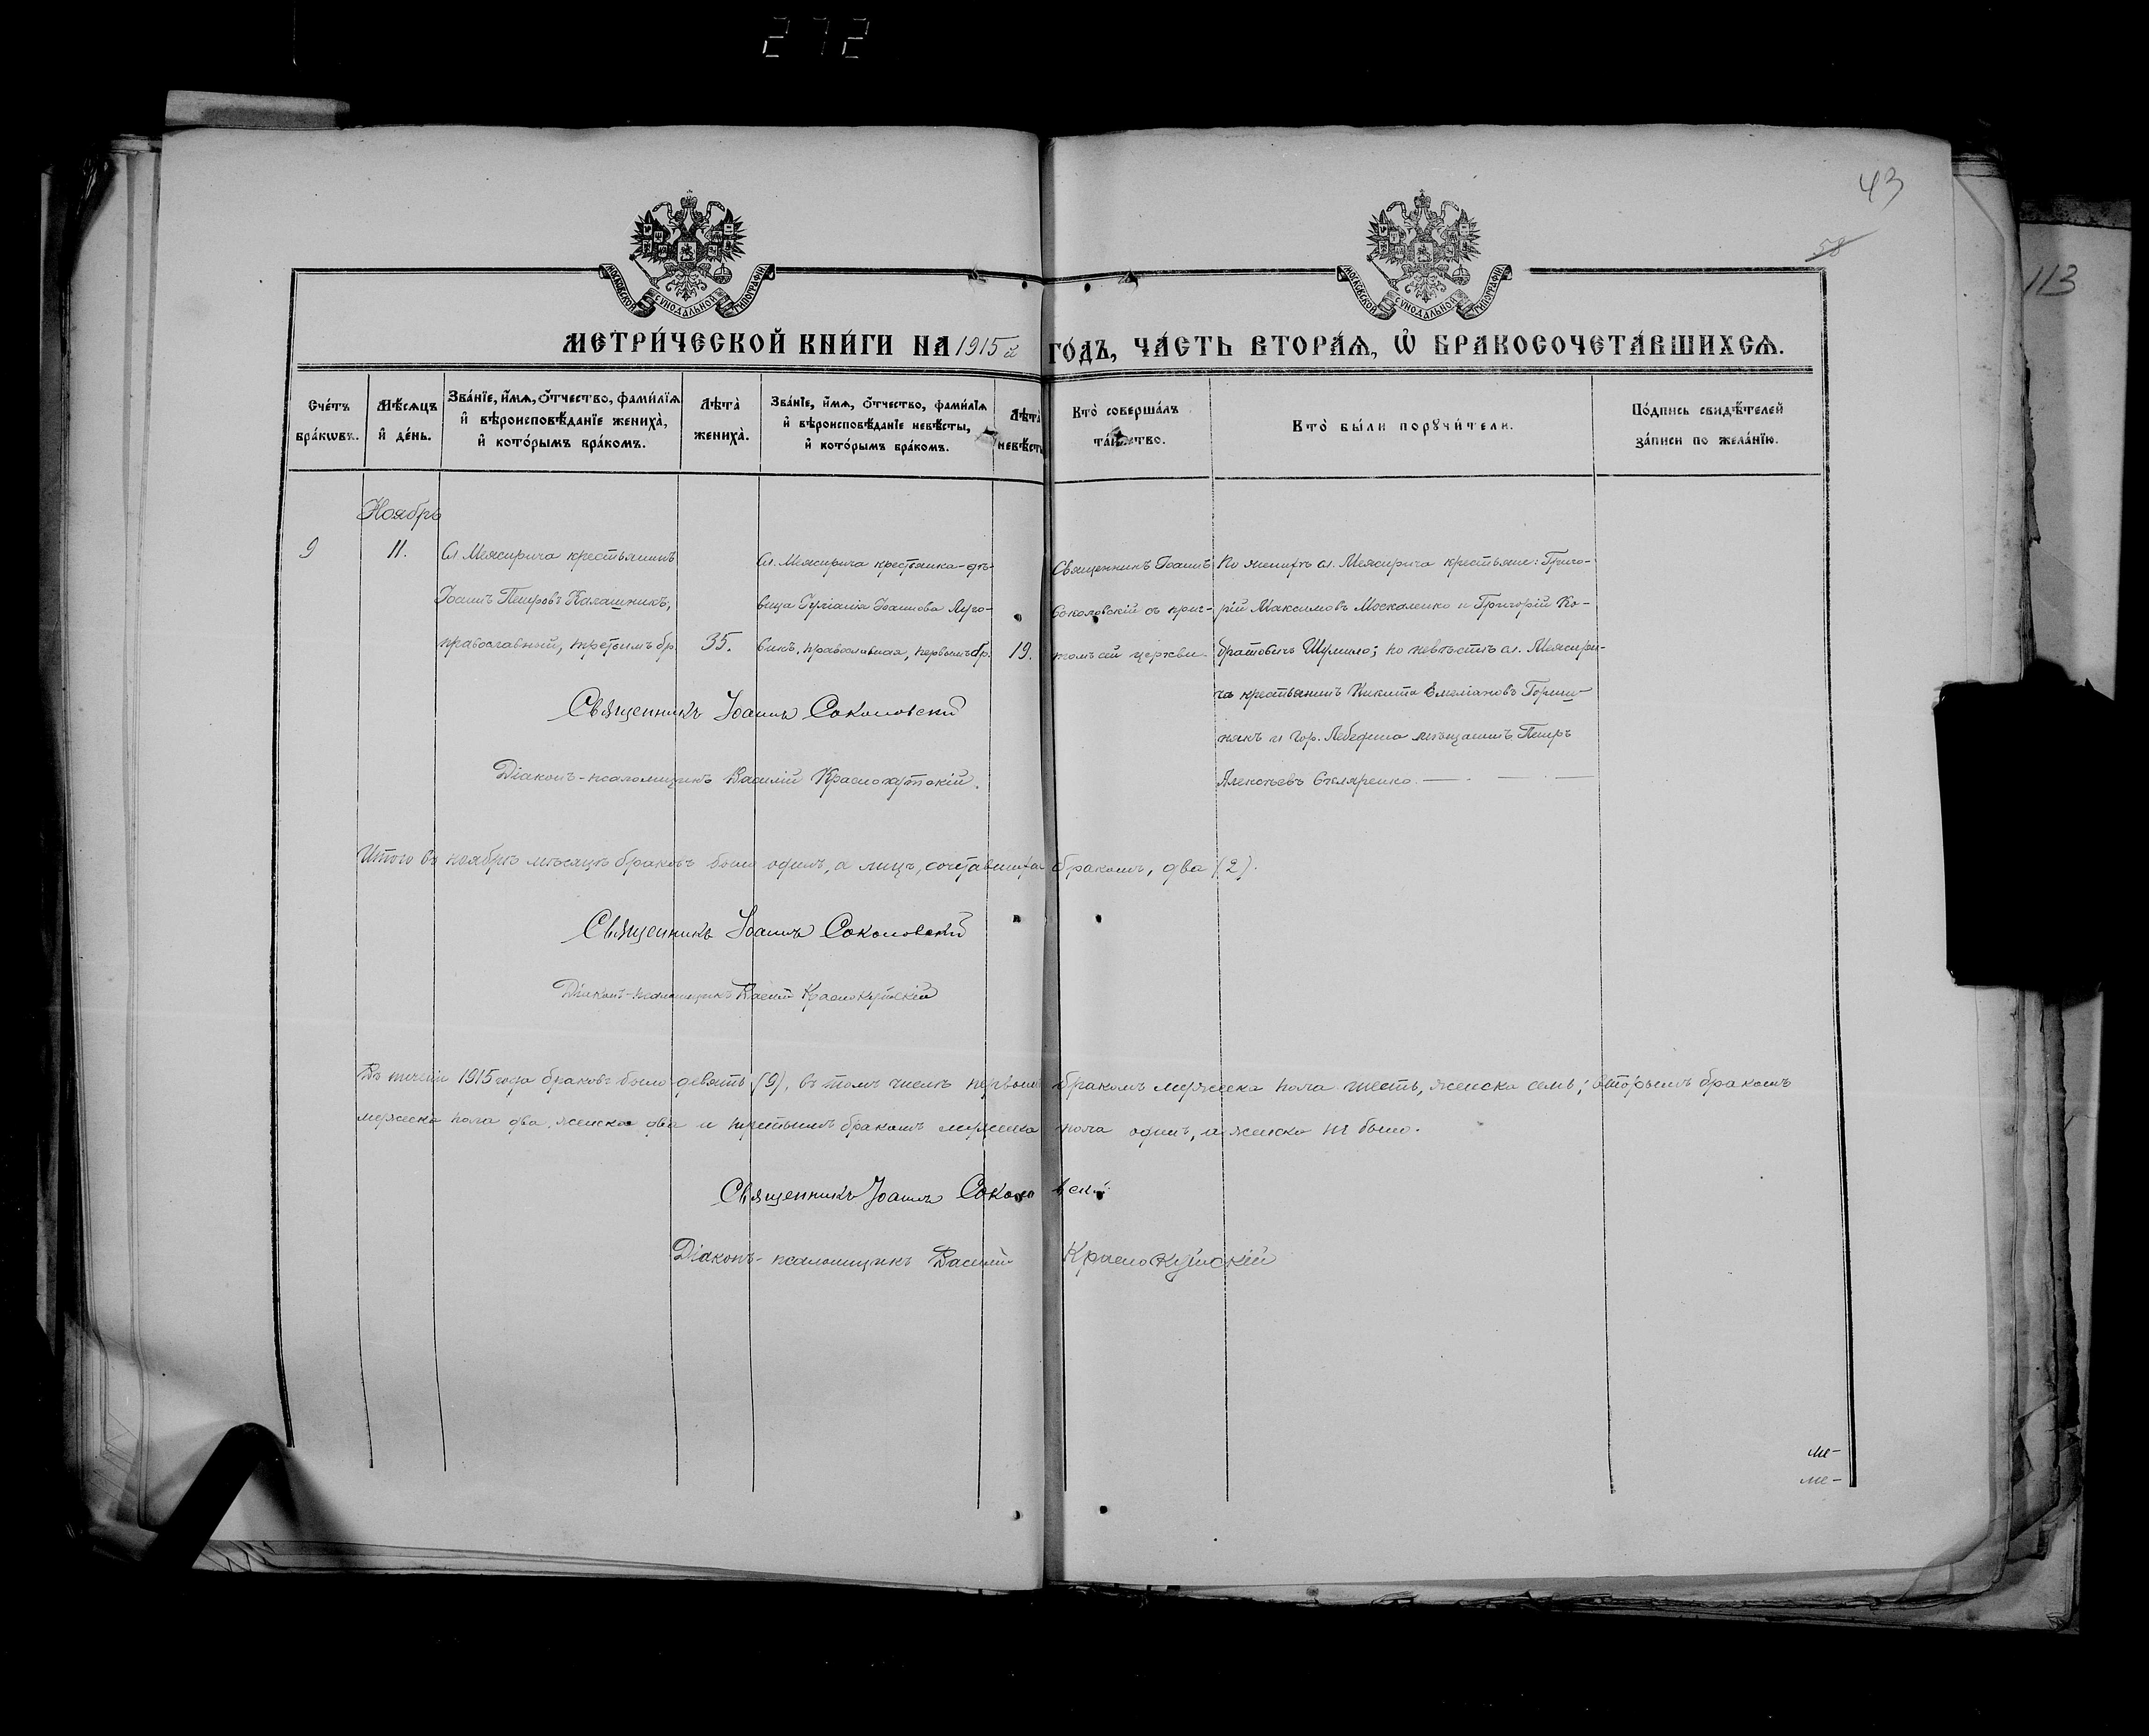 272
43
58
113
МОСКОВСКОЙ СУНОДАЛЬНОЙ ТИПОГРАФІИ
МОСКОВСКОЙ СУНОДАЛЬНОЙ ТИПОГРАФІИ
МЕТРИ́ЧЕСКОЙ КНИ́ГИ НА 1915 й ГО́ДЪ, ЧА́СТЬ ВТОРА́Ѧ, Ѽ БРАКОСОЧЕТА́ВШИХСѦ.
Сче́тъ бра́кѡвъ.
Мѣ́сѧцъ и҆ де́нь.
Зва́нїе, и҆́мѧ, ѻ҆́тчество, фами́лїѧ и҆ вѣроисповѣ́данїе жениха̀, и҆ кото́рымъ бра́комъ.
Лѣта̀ жениха̀.
Зва́нїе, и҆́мѧ, ѻ҆́тчество, фами́лїѧ и҆ вѣроисповѣ́данїе невѣ́сты, и҆ кото́рымъ бра́комъ.
Лѣта̀ невѣ́сты
Кто̀ соверша́лъ та́инство.
Кто̀ бы́ли порꙋчи́тели.
По́дпись свидѣ́телей за́писи по жела́нїю.
Ноябрь
9
11.
Сл. Межирича крестьянинъ
Іоаннъ Петровъ Калашникъ,
православный, третьимъ бр.
35.
Сл. Межирича крестьянка-дѣ-
вица Іуліанія Іоаннова Луго-
викъ, православная, первымъ бр.
19.
Священникъ Іоаннъ
Соколовскій съ прич-
томъ сей церкви
По женихѣ сл. Межирича крестьяне: Григо-
рій Максимовъ Москаленко и Григорій Ко-
дратовичъ Шумило; по невѣстѣ сл. Межири-
ча крестьянинъ Никита Емеліановъ Гориш-
някъ и гор. Лебедина мѣщанинъ Петръ
Алексѣевъ Скляренко.
Священникъ Іоаннъ Соколовскій
Діаконъ-псаломщикъ Василій Краснокутскій.
Итого въ ноябрѣ мѣсяцѣ браковъ было одинъ, а лицъ, сочетавшихся бракомъ, два (2).
Священникъ Іоаннъ Соколовскій
Діаконъ-псаломщикъ Василій Краснокутскій
Въ теченіи 1915 года браковъ было девять (9), въ томъ числѣ первымъ бракомъ мужеска пола шесть, женска семь; вторымъ бракомъ
мужеска пола два, женска два и третьимъ бракомъ мужеска пола одинъ, а женска не было.
Священникъ Іоаннъ Соколовскій
Діаконъ-псаломщикъ Василій Краснокутскій
ме-
ме-